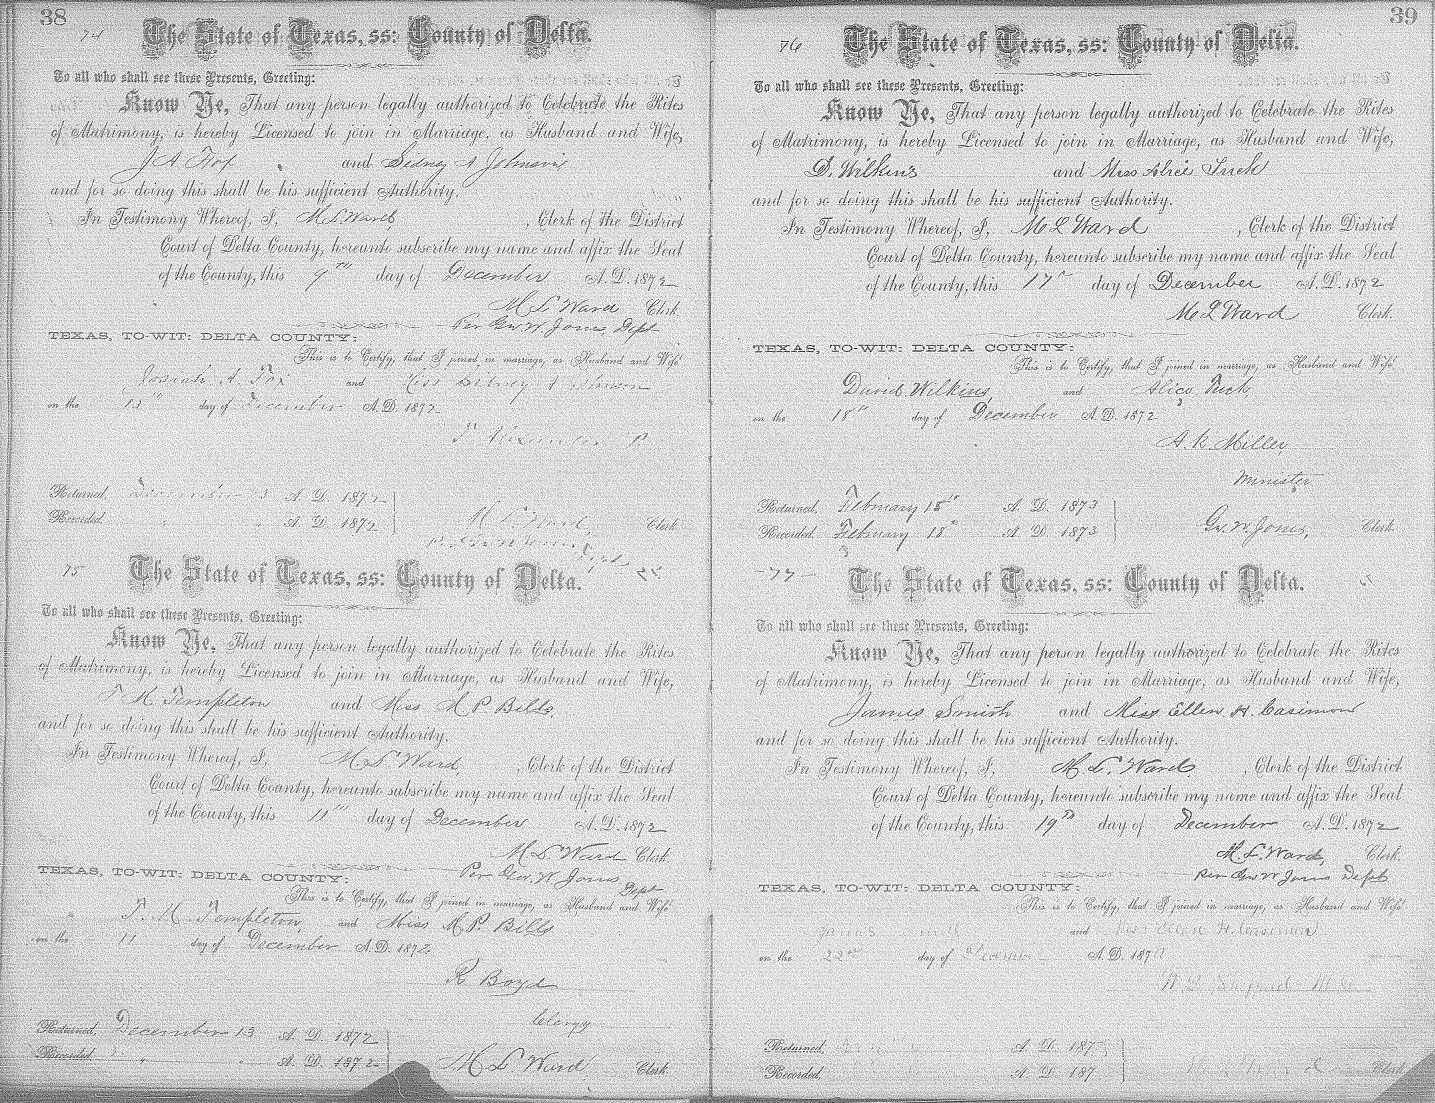 38
74
The State of Texas, ss: County of Delta.
To all who shall see these Presents, Greeting:
Know Ye, That any person legally authorized to Celebrate the Rites
of Matrimony, is hereby Licensed to join in Marriage, as Husband and Wife,
J A Fox and Sidney A Johnson
and for so doing this shall be his sufficient Authority.
In Testimony Whereof, I, M L Ward, , Clerk of the District
Court of Delta County, hereunto subscribe my name and affix the Seal
of the County, this 9th day of December A. D. 1872
M L Ward Clerk.
Per Geo W Jones Dept
TEXAS, TO-WIT: DELTA COUNTY:
This is to Certify, that I joined in marriage, as Husband and Wife
Josiah A. Fox and Miss Sidney A Johnson
on the day of December A. D. 1872
Returned, December A. D. 1872
Recorded, " " A. D. 1872
M L Ward, Clerk
75
The State of Texas, ss: County of Delta.
To all who shall see these Presents, Greeting:
Know Ye, That any person legally authorized to Celebrate the Rites
of Matrimony, is hereby Licensed to join in Marriage, as Husband and Wife,
F M Templeton and Miss M P. Bills,
and for so doing this shall be his sufficient Authority.
In Testimony Whereof, I, M L Ward, , Clerk of the District
Court of Delta County, hereunto subscribe my name and affix the Seal
of the County, this 11th day of December A. D. 1872
M L Ward Clerk.
Per Geo. W Jones Dept
TEXAS, TO-WIT: DELTA COUNTY:
This is to Certify, that I joined in marriage, as Husband and Wife
F. M Templeton, and Miss M. P. Bills
on the 11 day of December A. D. 1872
R Boyd
Clergy
Returned, December 13 A. D. 1872
Recorded, " " A. D. 1872
M L Ward Clerk
39
76
The State of Texas, ss: County of Delta.
To all who shall see these Presents, Greeting:
Know Ye, That any person legally authorized to Celebrate the Rites
of Matrimony, is hereby Licensed to join in Marriage, as Husband and Wife,
D. Wilkins and Miss Alice Tuck
and for so doing this shall be his sufficient Authority.
In Testimony Whereof, I, M L Ward , Clerk of the District
Court of Delta County, hereunto subscribe my name and affix the Seal
of the County, this 17th day of December A. D. 1872
M L Ward Clerk.
TEXAS, TO-WIT: DELTA COUNTY:
This is to Certify, that I joined in marriage, as Husband and Wife
David Wilkins, and Alice Tuck,
on the 18th day of December A. D. 1872
A. K. Miller,
Minister
Returned, February 18th A. D. 1873
Recorded, February 18th A. D. 1873
Geo. W Jones, Clerk
-77-
The State of Texas, ss: County of Delta.
To all who shall see these Presents, Greeting:
Know Ye, That any person legally authorized to Celebrate the Rites
of Matrimony, is hereby Licensed to join in Marriage, as Husband and Wife,
James Smith and Miss Ellen H. Casimon
and for so doing this shall be his sufficient Authority.
In Testimony Whereof, I, M. L. Ward , Clerk of the District
Court of Delta County, hereunto subscribe my name and affix the Seal
of the County, this 19th day of December A. D. 1872
M. L. Ward, Clerk.
Per Geo W Jones Dept
TEXAS, TO-WIT: DELTA COUNTY:
This is to Certify, that I joined in marriage, as Husband and Wife
James Smith and Miss Ellen H. Casimon
on the 22nd day of December A. D. 187
Returned, A. D. 187
Recorded, A. D. 187
Clerk